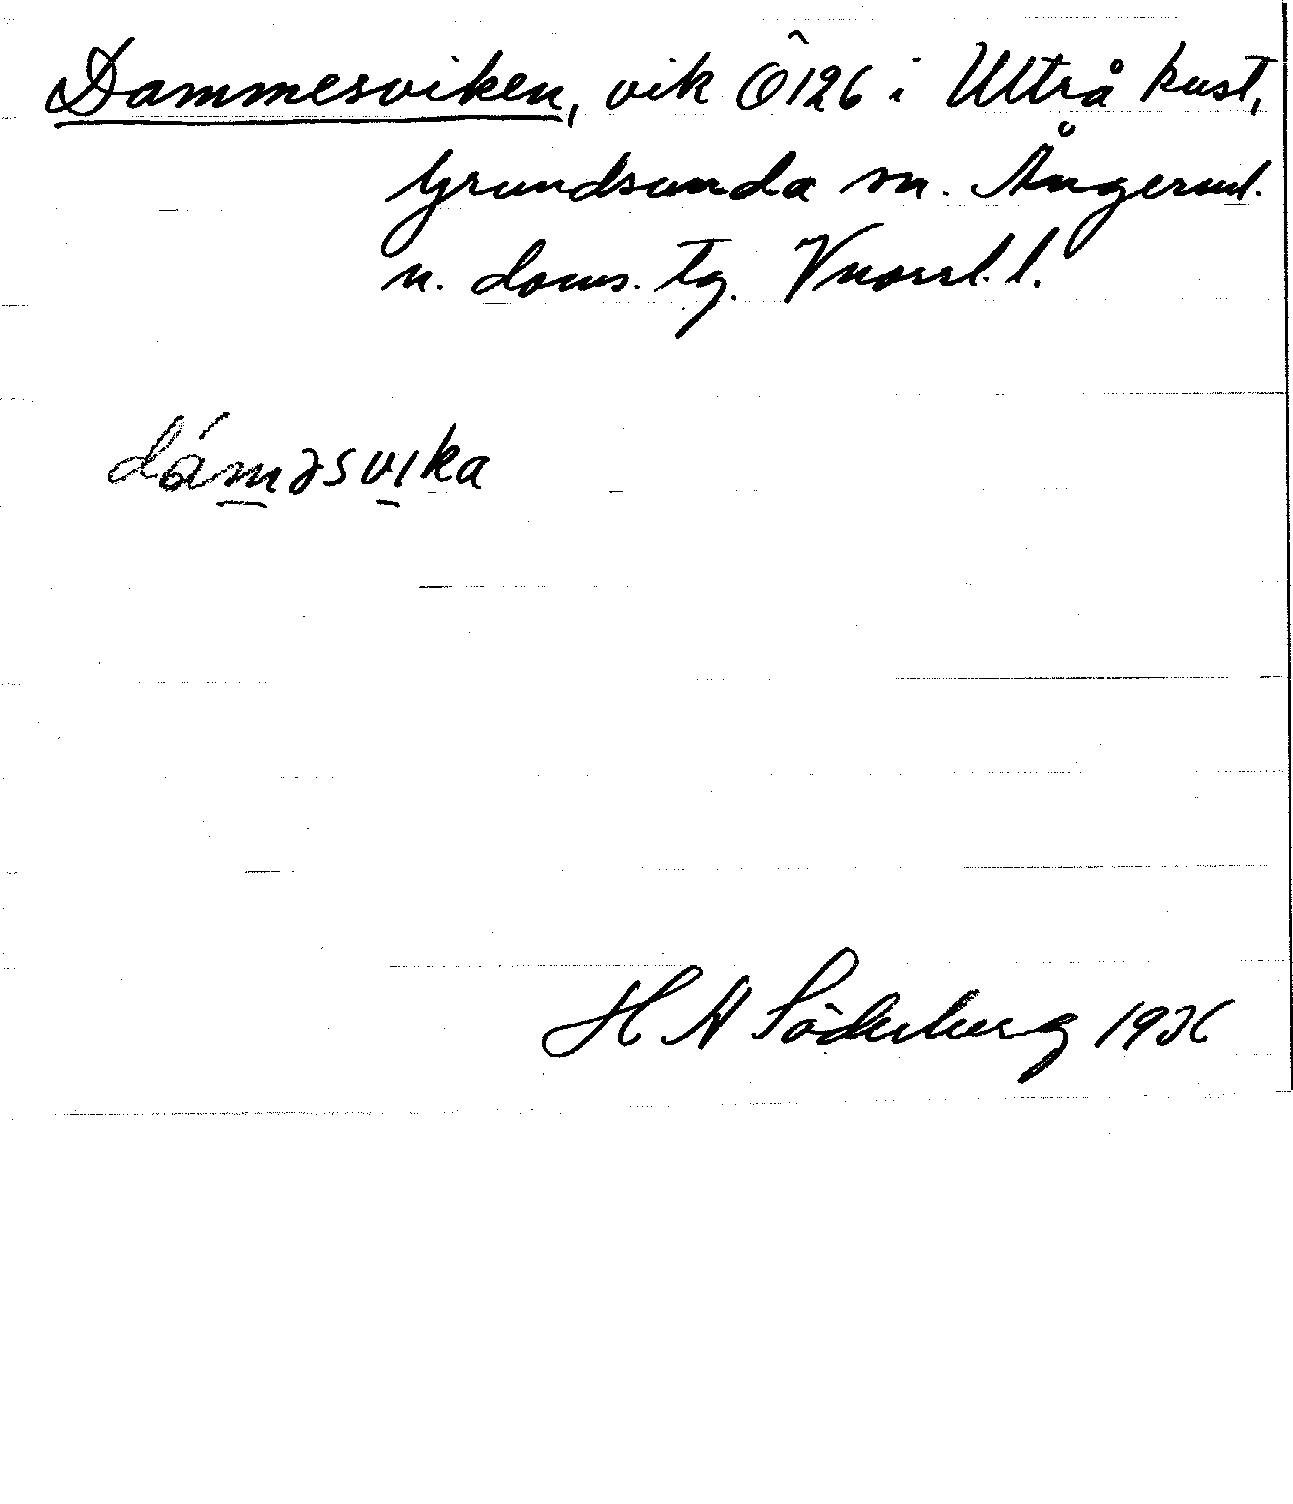 Dammesviken, vik Ö126 i Ultrå kust,
Grundsunda sn. Ångerml.
n. doms. tg. Vnorrl. l.
dáməsvika
H N Söderberg 1936